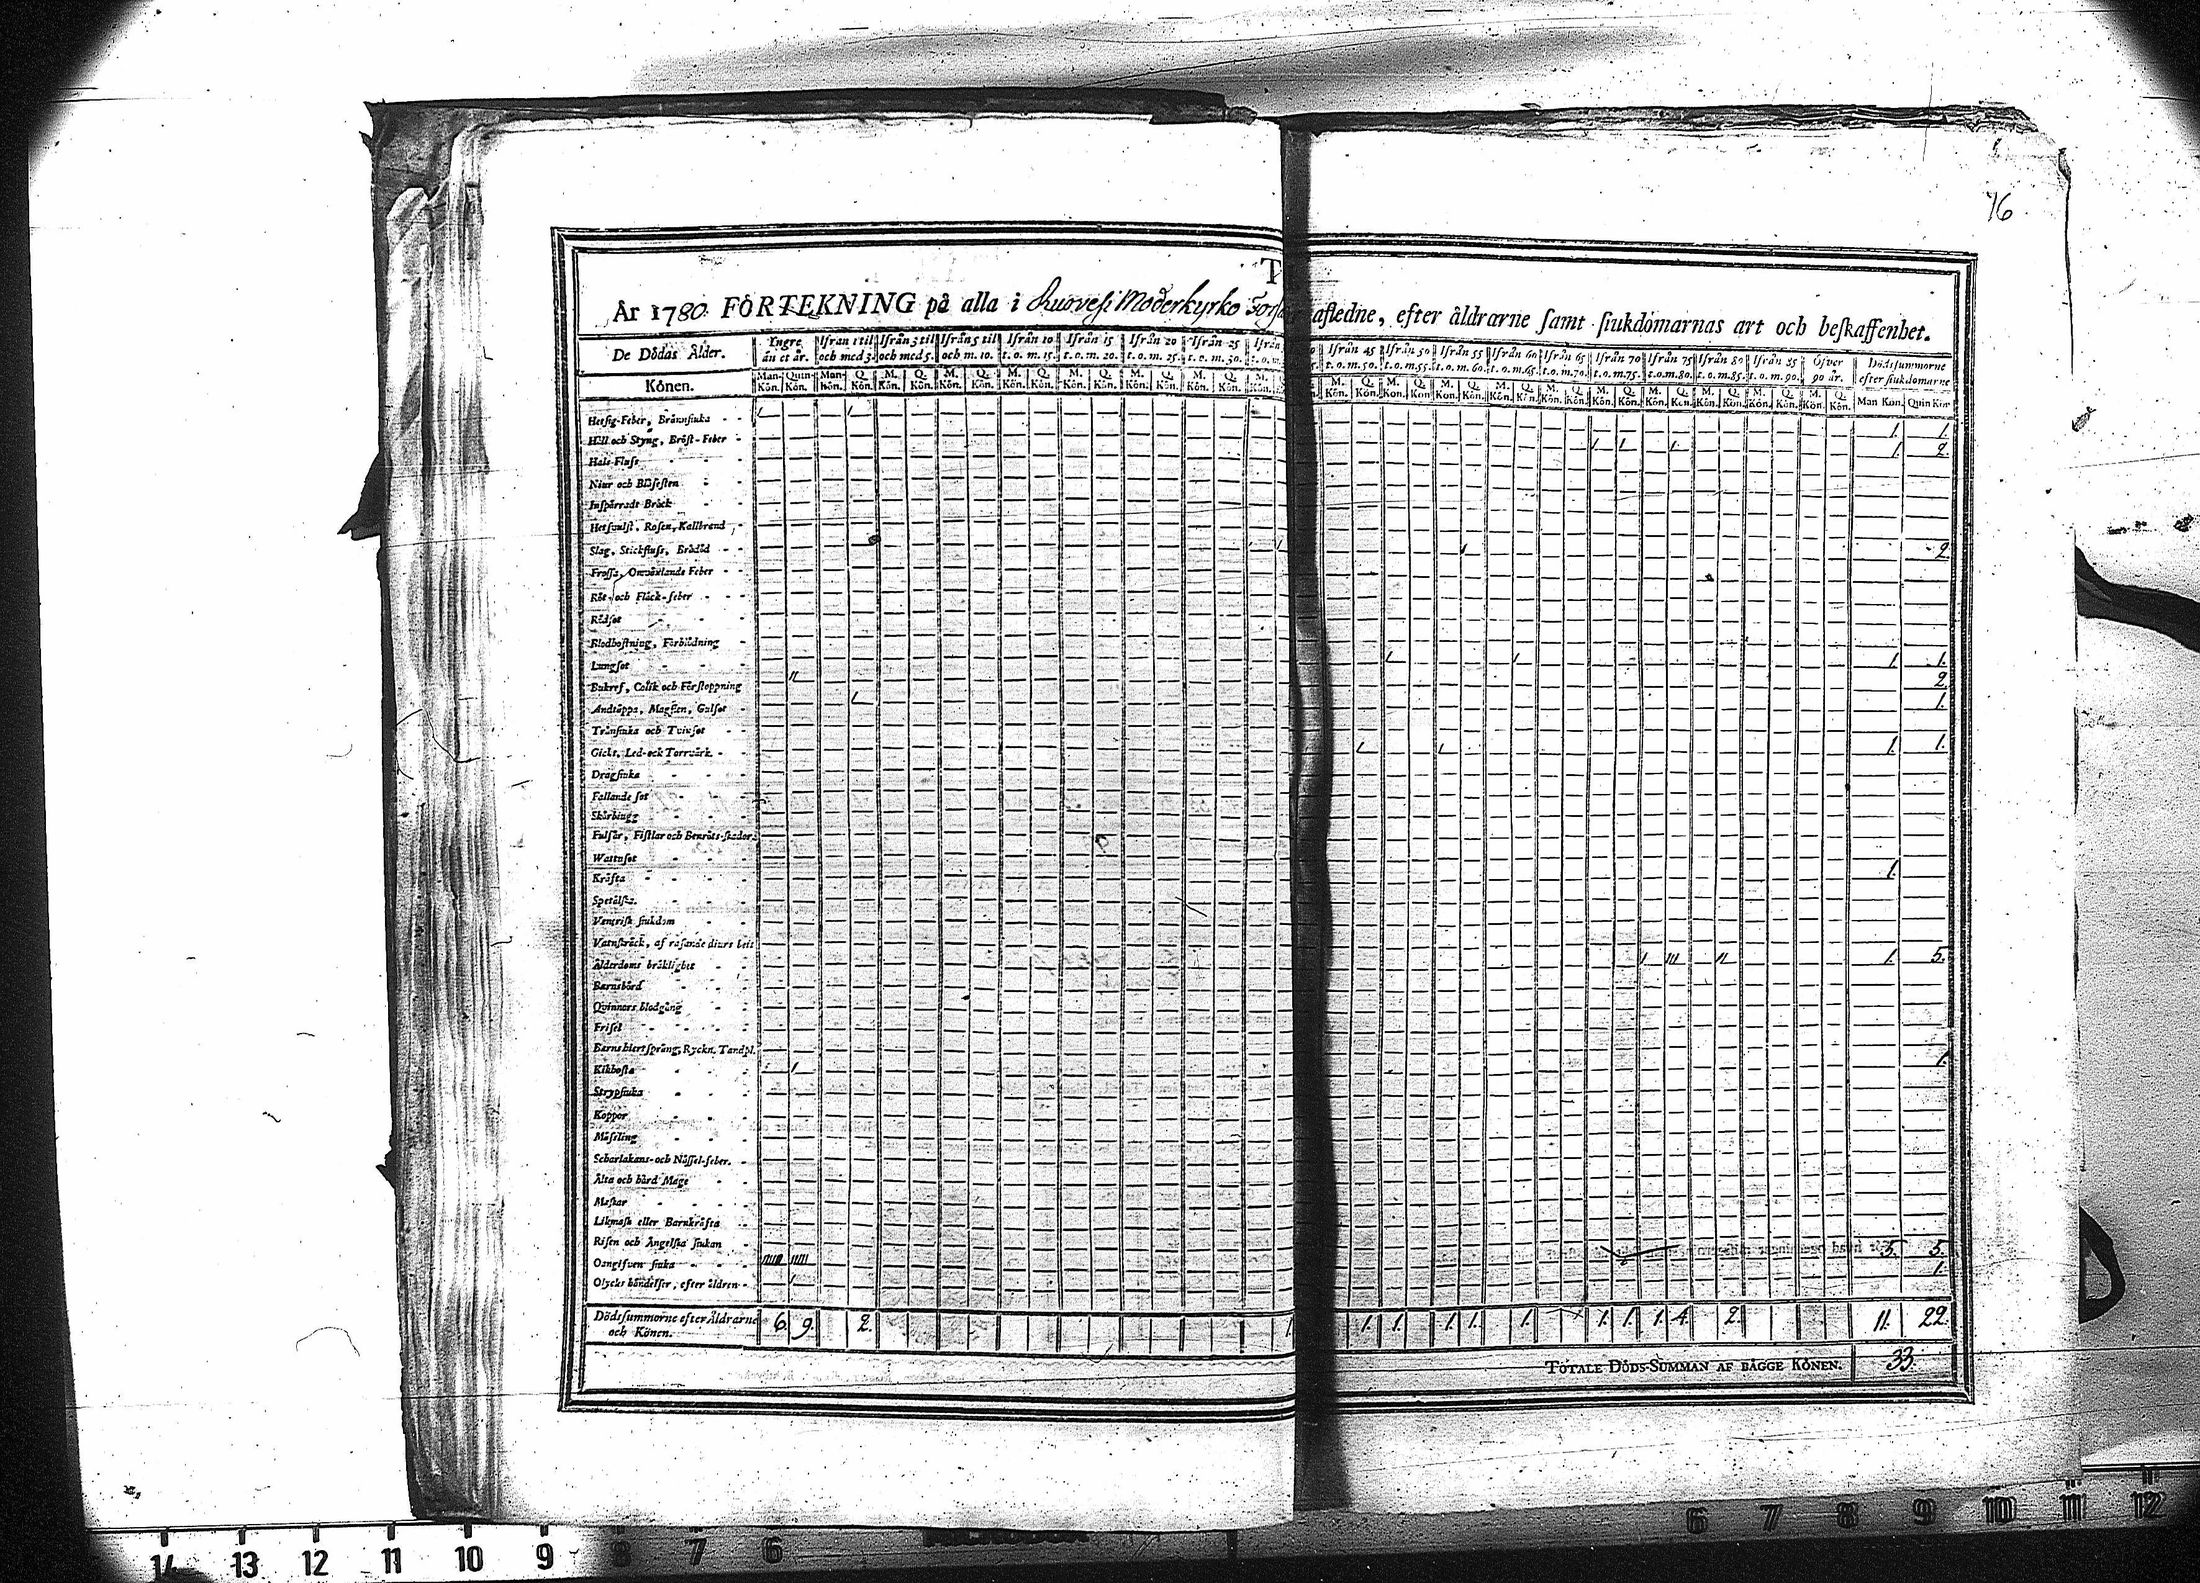 76
T
År 1780. FÖRTEKNING på alla i Ruovesi Moderkyrko afledne, efter åldrarne samt siukdomarnas art och beskaffenhet.
De Dödas Ålder. Yngre än et år. Ifrån 1 til och med 3. Ifrån 3 til och med 5. Ifrån 5 til och m. 10. Ifrån 10 t. o. m. 15. Ifrån 15 t. o. m. 20. Ifrån 20 t. o. m. 25. Ifrån 25 t. o. m. 30. Ifrån 45 t. o. m. 50. Ifrån 50 t. o. m. 55. Ifrån 55 t. o. m. 60. Ifrån 60 t. o. m. 65. Ifrån 65 t. o. m. 70. Ifrån 70 t. o. m. 75. Ifrån 75 t. o. m. 80. Ifrån 80 t. o. m. 85. Ifrån 85 t. o. m. 90. Öfver 90 år. Dödssummorne efter siukdomarne
Könen. Man-Kön. Quin-Kön. Man-kön. Q. Kön. M. Kön. Q. Kön. M. Kön. Q. Kön. M. Kön. Q. Kön. M. Kön. Q. Kön. M. Kön. Q. Kön. M. Kön. Q. Kön. M. Kön. Q. Kön. M. Kön. Q. Kön. M. Kön. Q. Kön. M. Kön. Q. Kön. M. Kön. Q. Kön. M. Kön. Q. Kön. M. Kön. Q. Kön. M. Kön. Q. Kön. M. Kön. Q. Kön. Man Kön. Quin Kön
Hetsig-Feber, Brännsiuka 1 1 1. 1.
Håll och Styng, Bröst-Feber 1 1 1 1. 2.
Hals-Fluss
Niur och Blåsesten
Inspärradt Bråck
Hetsvulst, Rosen, Kallbrand
Slag, Stickfluss, Brådöd 1 1 2.
Frossa, Omväxlande Feber
Röt- och Fläck-feber
Rödsot
Blodhostning, Förblödning
Lungsot 1 1 1. 1.
Bukref, Colik och Förstoppning 11 2.
Andtäppa, Magten, Gulsot 1 1.
Trånsiuka och Tvinsot
Gickt, Led- och Torrvärk 1 1 1. 1.
Dragsiuka
Fallande sot
Skörbiugg
Fulsår, Fistlar och Benröts-skador
Wattusot 1.
Kräfta
Spetälska
Venerisk siukdom
Vatuskräck, af rasande diurs bett
Ålderdoms bräklighet 1 111 11 1. 5.
Barnsbörd
Qvinnors blodgång
Frisel
Barns hiertsprång, Ryckn. Tandpl.
Kikhosta 1 1.
Strypsiuka
Koppor
Mässling
Scharlakans- och Nässel-feber.
Älta och hård Mage
Maskar
Likmask eller Barnkräfta
Risen och Ängelska siukan
Oangifven siuka 11111 11111 5. 5.
Olycks händelser, efter åldren 1 1.
Dödssummorne efter Åldrarne och Könen. 6. 9. 2. 1. 1. 1. 1. 1. 1. 1. 1. 1. 4. 2. 11. 22.
TOTALE DÖDS-SUMMAN AF BÅGGE KÖNEN. 33.
14 13 12 11 10 9 8 7 6 6 7 8 9 10 11 12